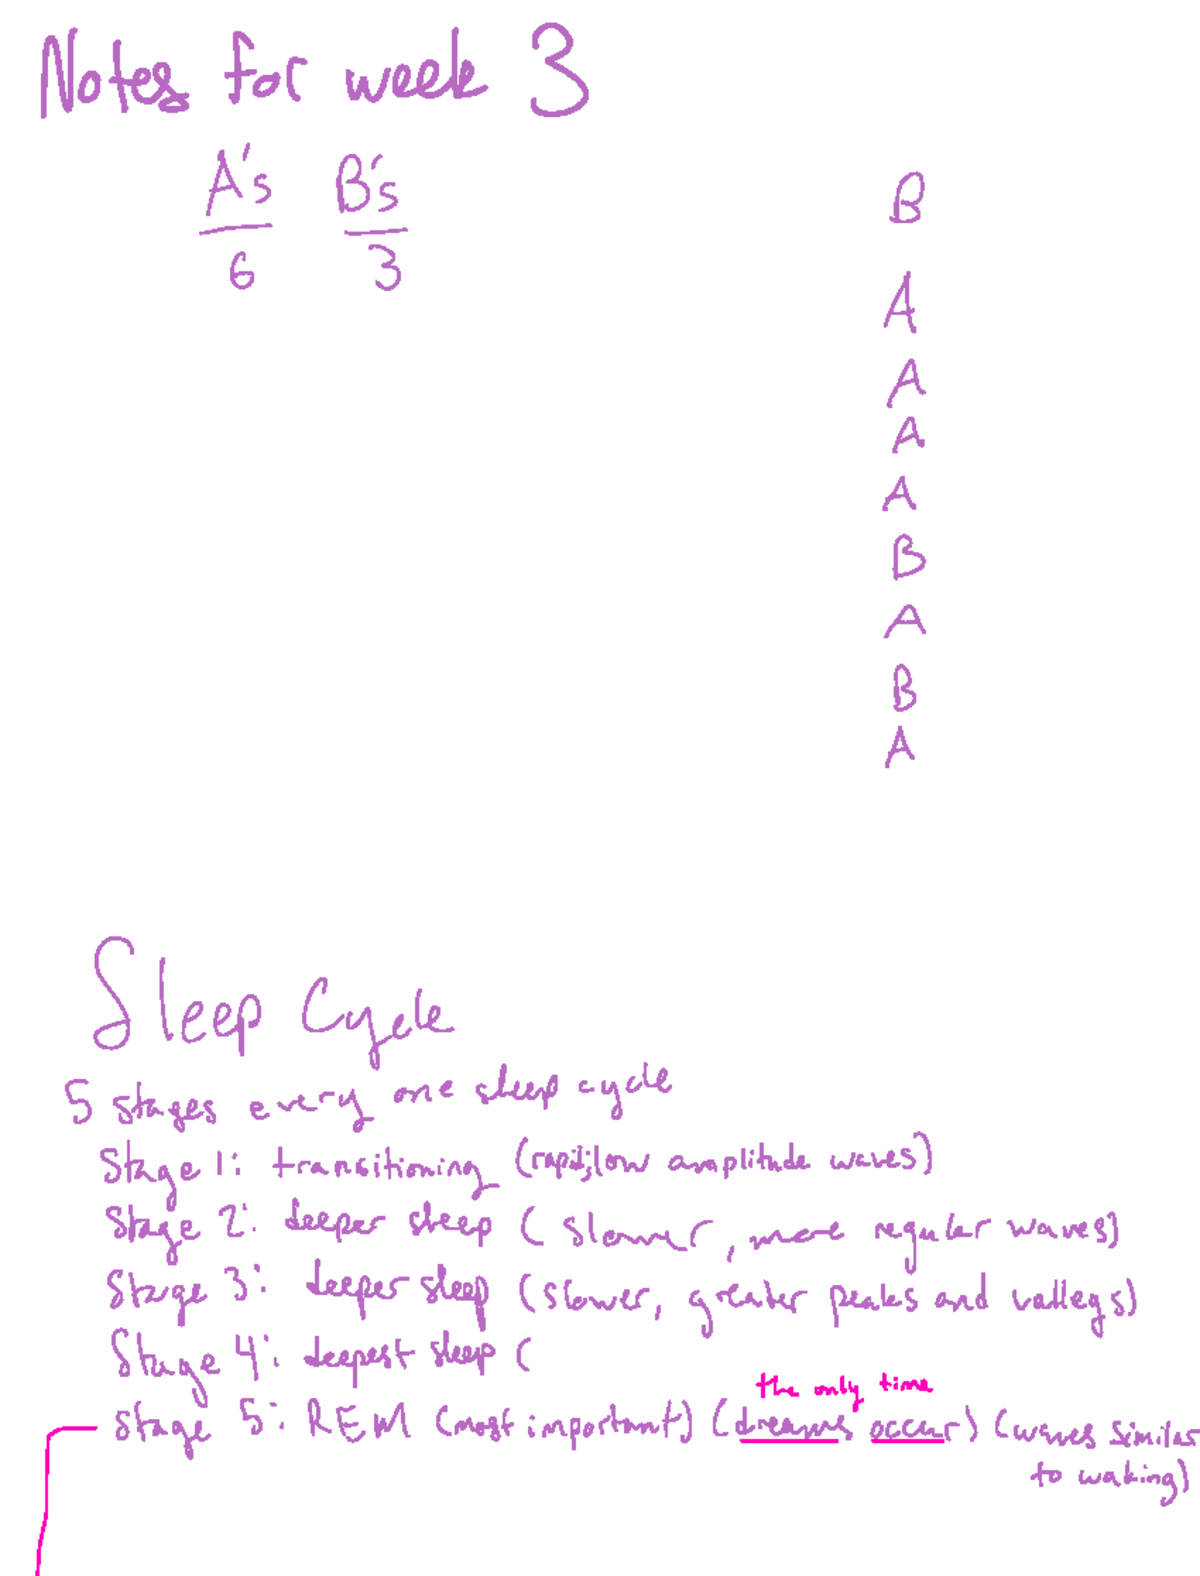 Notes for week 3
A's B's
6 3
B
A
A
A
A
B
A
B
A
Sleep Cycle
5 stages every one sleep cycle
Stage 1: transitioning (rapid, low amplitude waves)
Stage 2: deeper sleep (slower, more regular waves)
Stage 3: deeper sleep (slower, greater peaks and valleys)
Stage 4: deepest sleep (
the only time
Stage 5: REM (most important) (dreams occur) (waves similar
to waking)